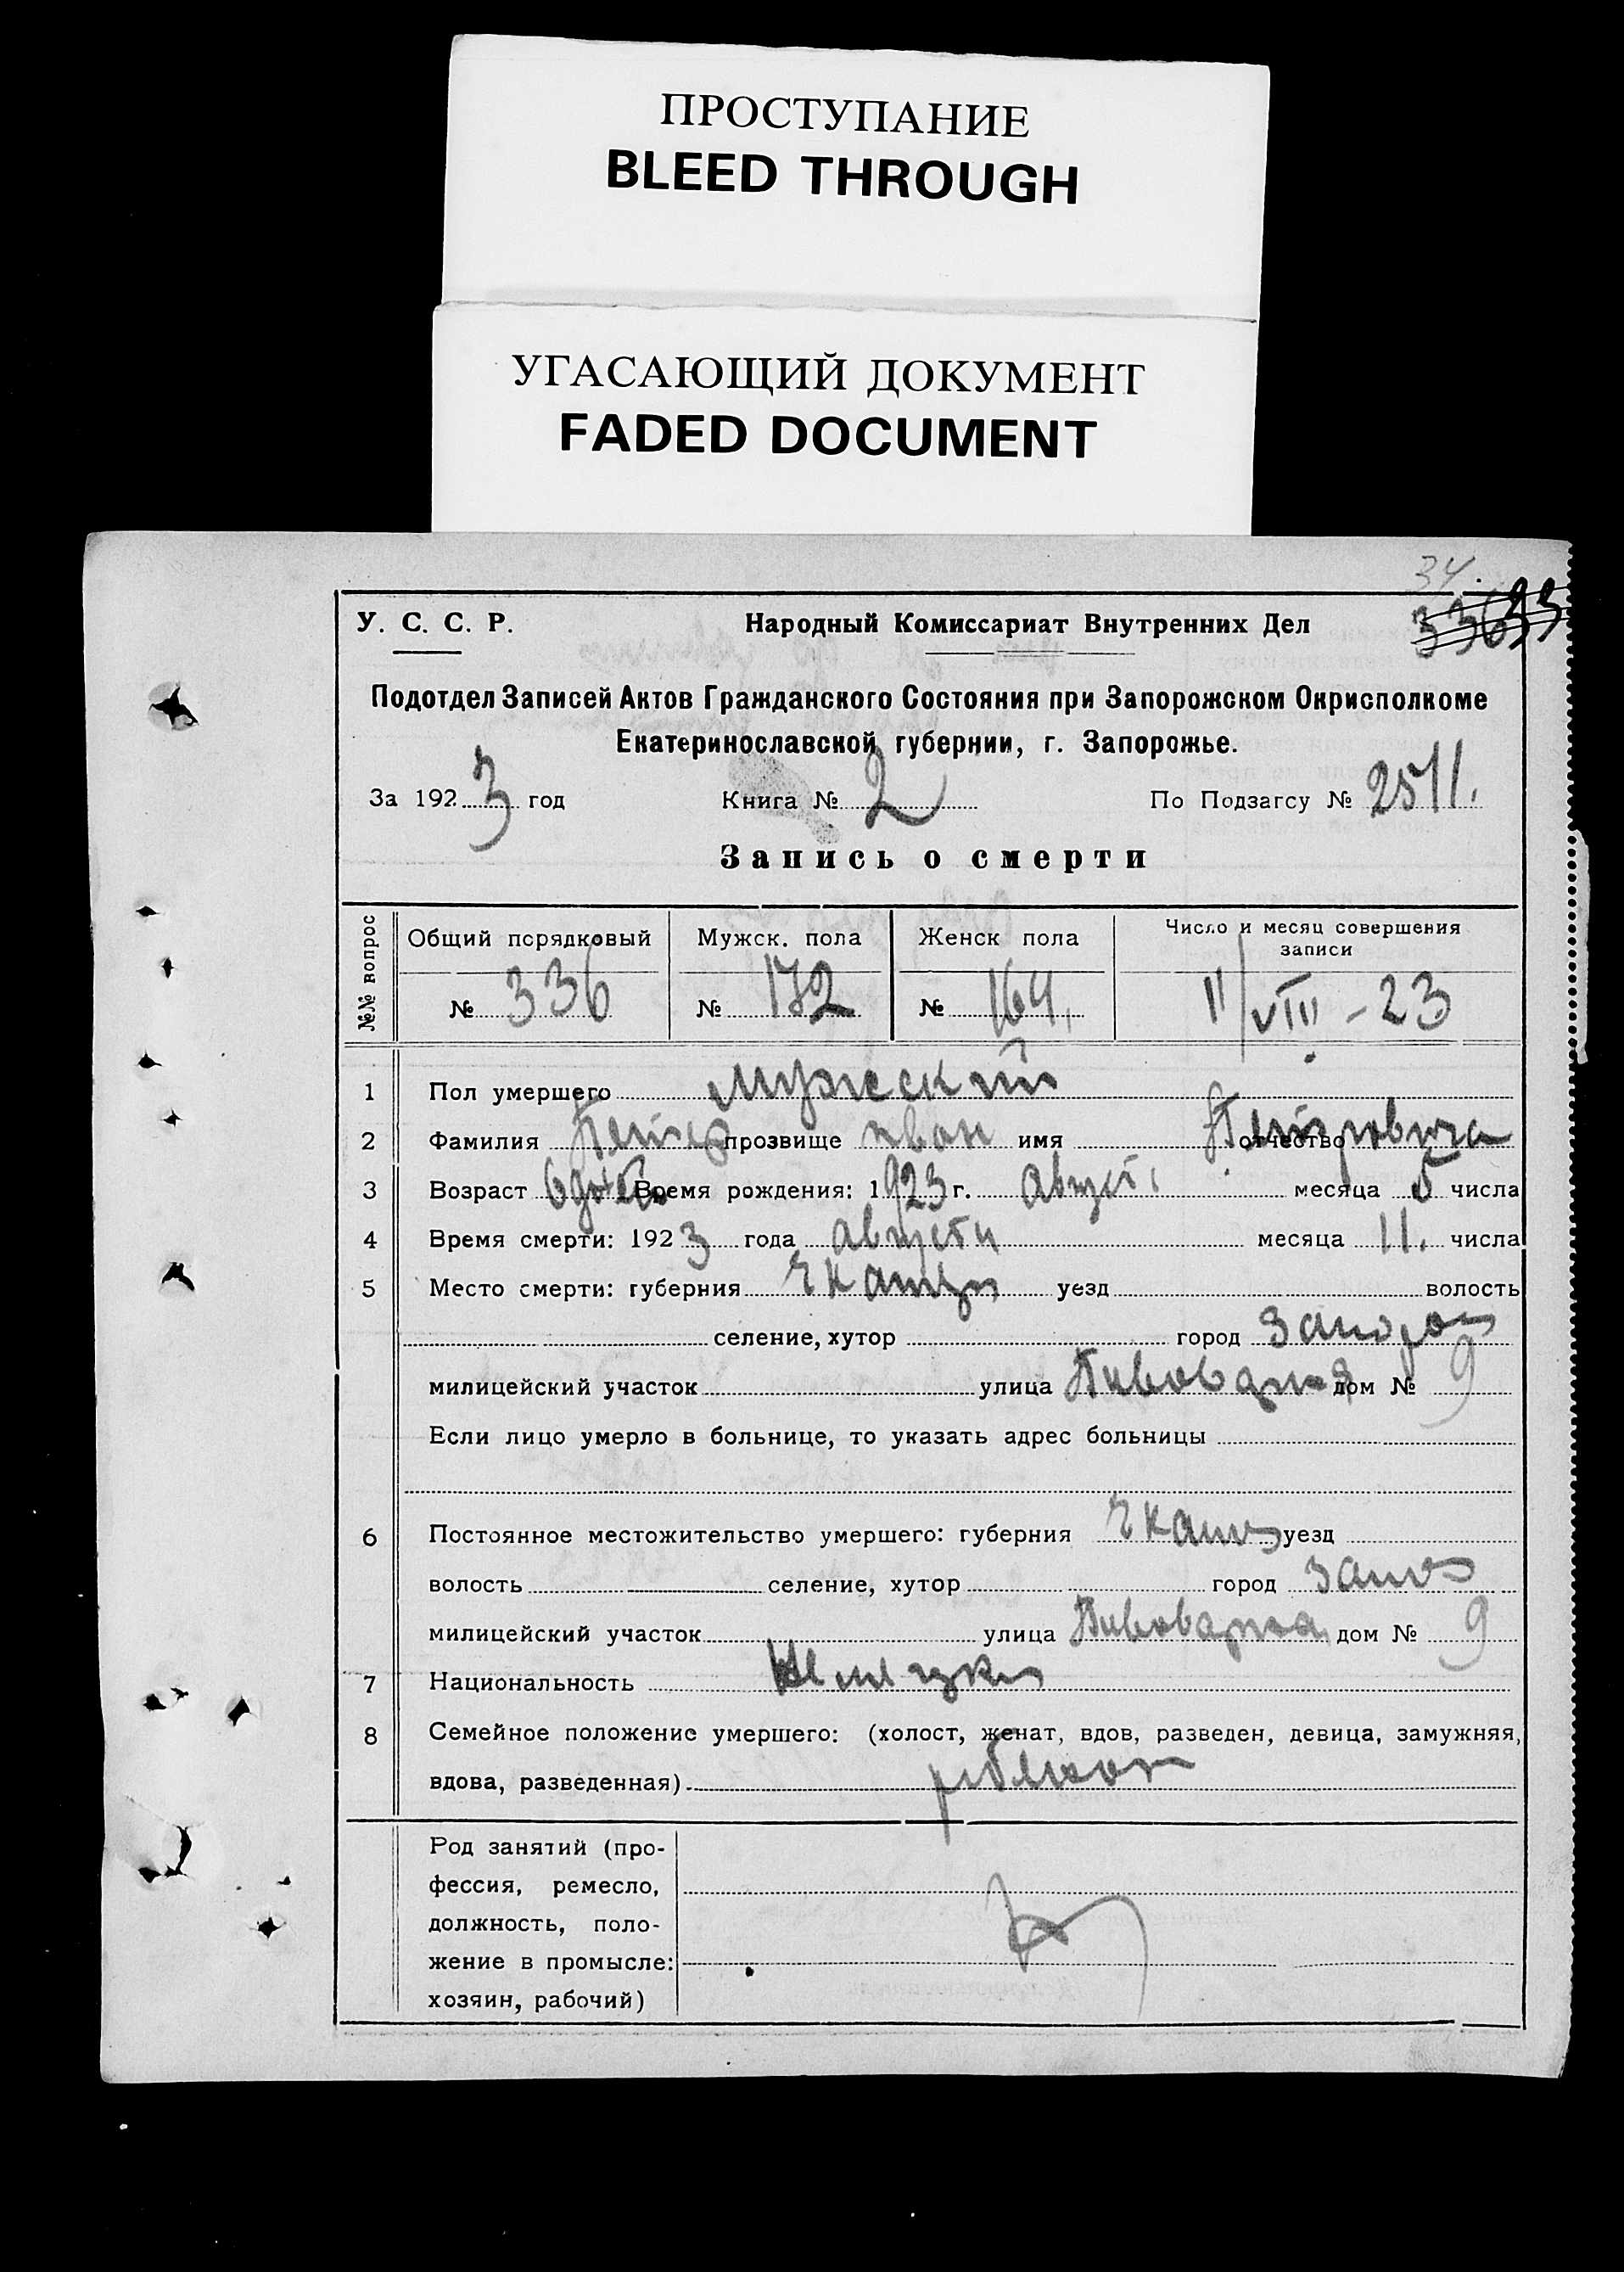 ПРОСТУПАНИЕ
BLEED THROUGH
УГАСАЮЩИЙ ДОКУМЕНТ
FADED DOCUMENT
34.
336 33
У. С. С. Р. Народный Комиссариат Внутренних Дел
Подотдел Записей Актов Гражданского Состояния при Запорожском Окрисполкоме
Екатеринославской губернии, г. Запорожье.
За 1923 год Книга № 2 По Подзагсу № 2511.
Запись о смерти
№№ вопрос Общий порядковый Мужск. пола Женск пола Число и месяц совершения
записи
№ 336 № 172 № 164, 11/VIII-23
1 Пол умершего мужской
2 Фамилия прозвище Иван имя отчество Петровича
3 Возраст 6 Время рождения: 1923 г. Август месяца 5 числа
4 Время смерти: 1923 года августа месяца 11. числа
5 Место смерти: губерния уезд волость
селение, хутор город Запор
милицейский участок улица Пивоварная дом № 9
Если лицо умерло в больнице, то указать адрес больницы
6 Постоянное местожительство умершего: губерния уезд
волость селение, хутор город Запо
милицейский участок улица Пивоварная дом № 9
7 Национальность
8 Семейное положение умершего: (холост, женат, вдов, разведен, девица, замужняя,
вдова, разведенная)
Род занятий (про-
фессия, ремесло,
должность, поло-
жение в промысле:
хозяин, рабочий)